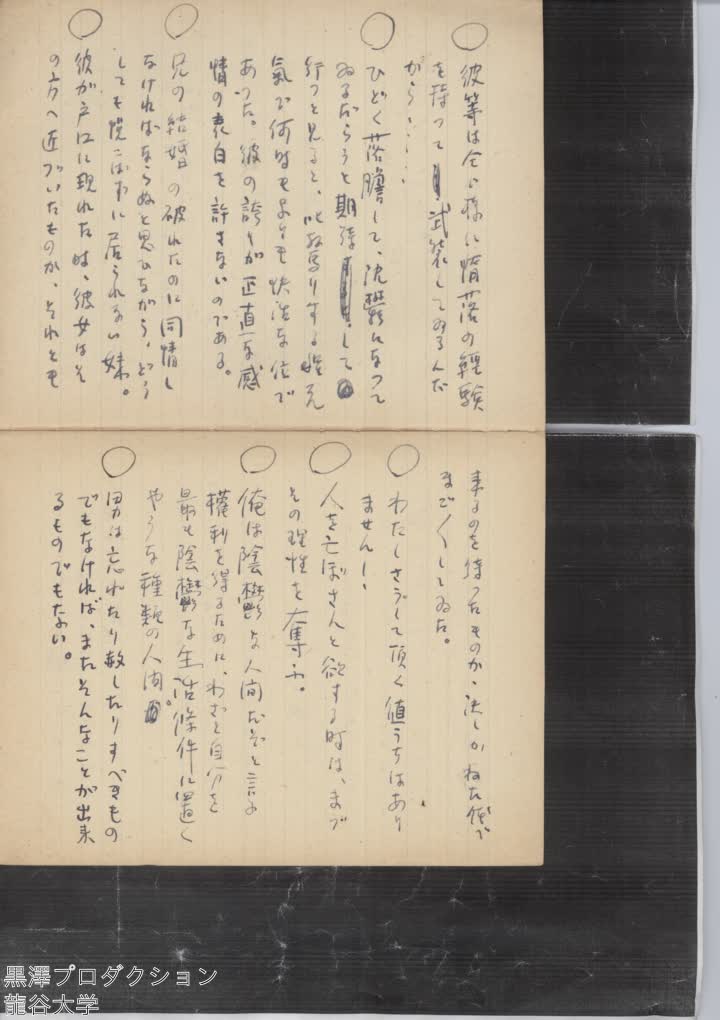 ○
彼等は全に様に惰落の経験
を持つて武装してゐるんだ
から……
○
ひどく落膽して、沈鬱になつて
ゐるだらうと期待して
行つと見ると、
氣で何時もよりも快活な位で
あつた。彼の誇りが正直な感
情の表白を許さないのである。
○
兄の結婚の破れたのに同情し
なければならぬと思ひながら、どう
しても悦こばずに居られない妹。
○
彼が戸口に現れた時、彼女はそ
の方へ近づいたものか、それとも
来るのを待つたものか、決しかねた儘で
まごくしてゐた。
○
わたしさうして頂く値うちはあり
ません！
○
人を亡ぼさんと欲する時は、まづ
その理性を奪ふ。
○
俺は陰鬱な人間だぞと言ふ
權利を得るために、わざと自分を
最も陰鬱な生活條件に置く
やうな種類の人間。
○
男は忘れたり赦したりすべきもの
でもなければ、またそんなことが出来
るものでもない。
黒澤プロダクション
龍谷大学